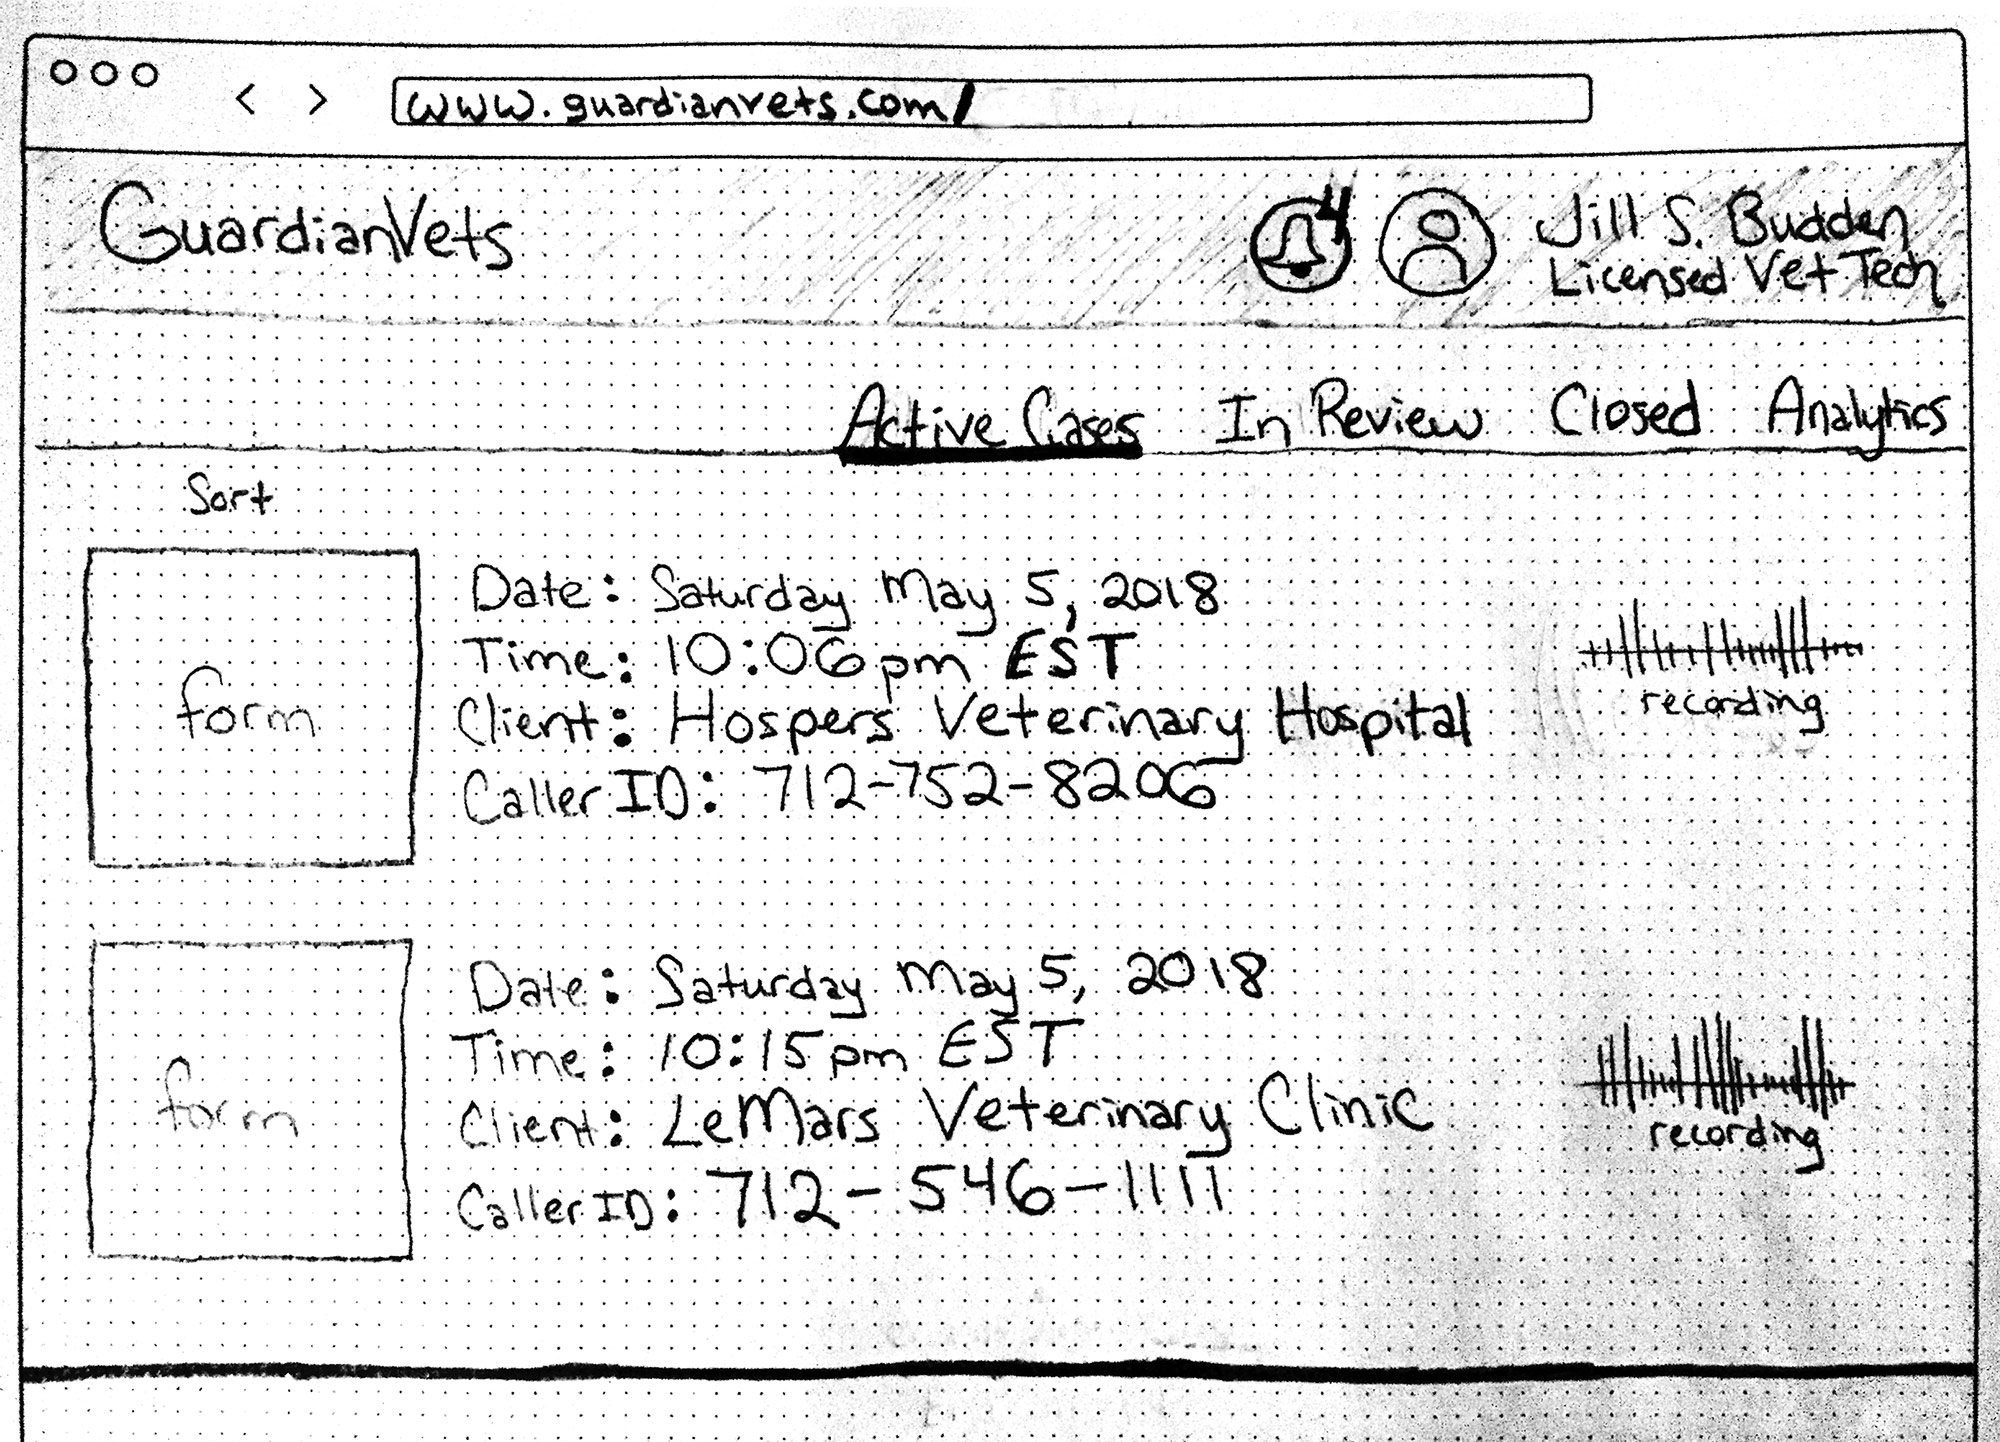 www.guardianvets.com/
GuardianVets
4
Jill S. Budden
Licensed Vet Tech
Active Cases In Review Closed Analytics
Sort
form
Date: Saturday May 5, 2018
Time: 10:06pm EST
Client: Hospers Veterinary Hospital
Caller ID: 712-752-8206
recording
form
Date: Saturday May 5, 2018
Time: 10:15pm EST
Client: LeMars Veterinary Clinic
Caller ID: 712-546-1111
recording